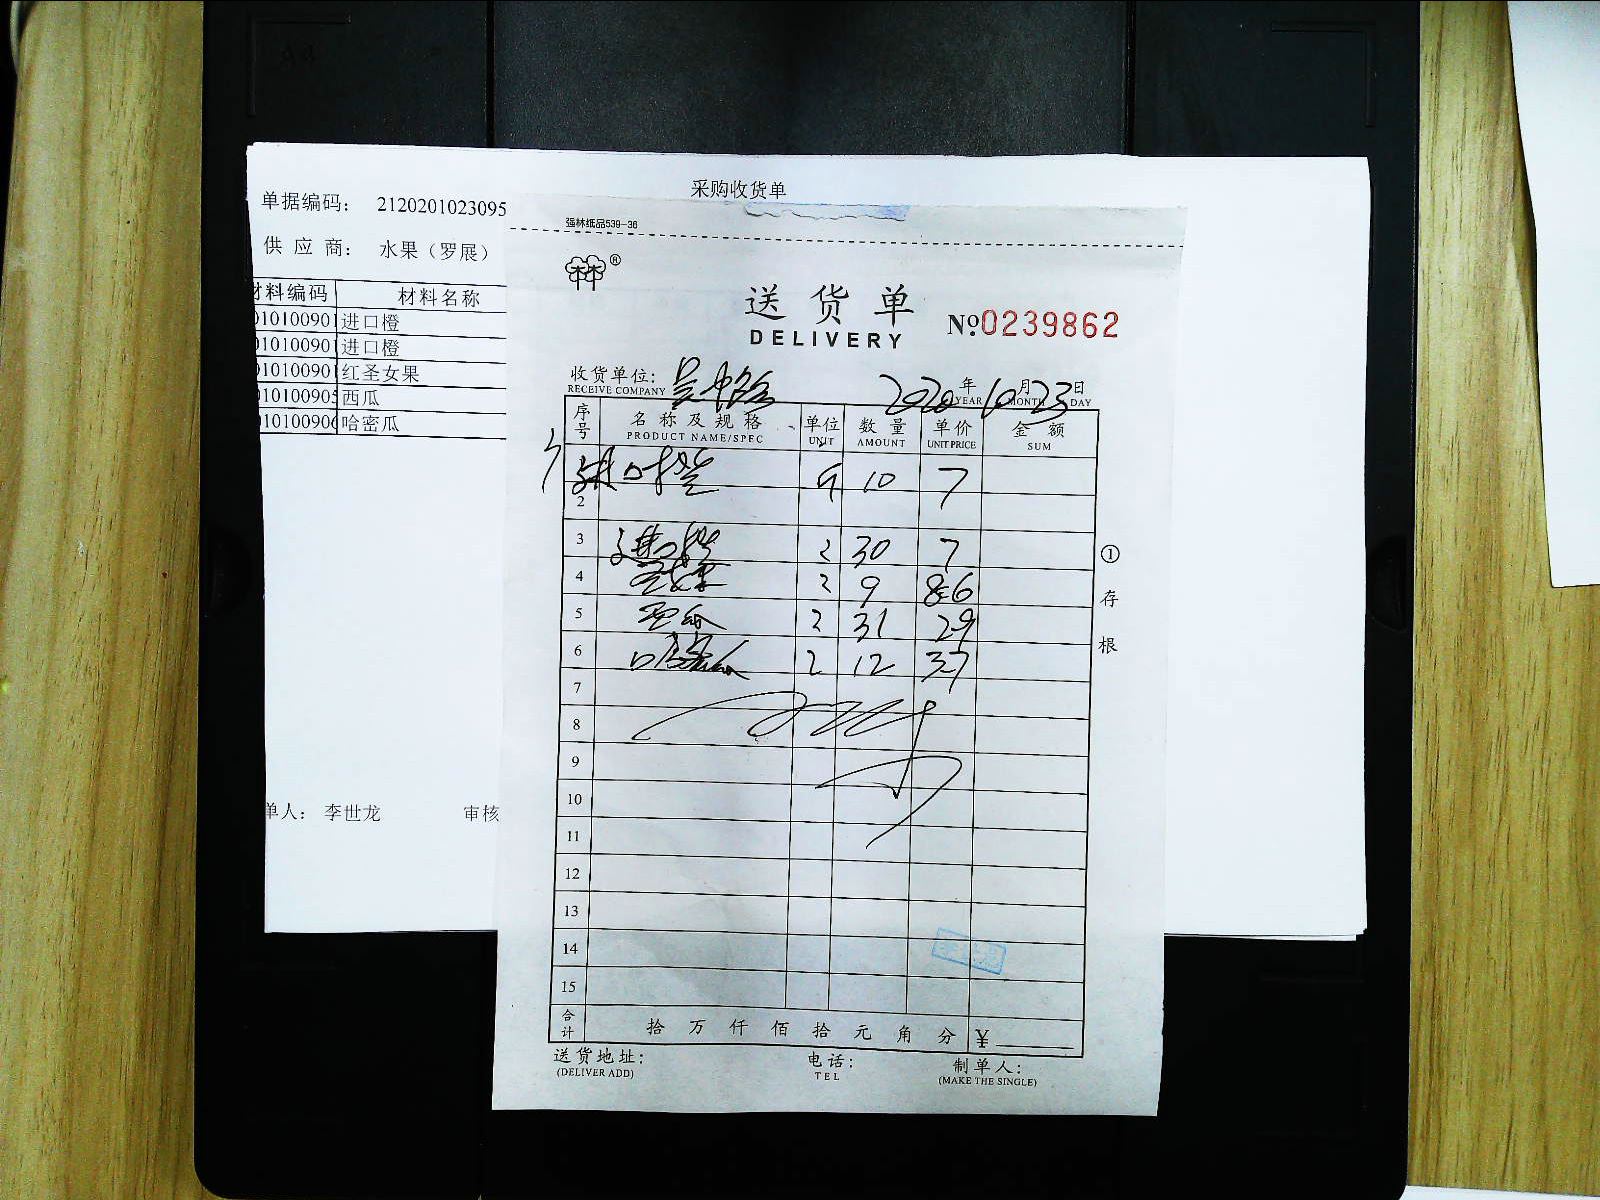 采购收货单
单据编码： 2120201023095
供 应 商： 水果（罗展）
材料编码 材料名称
010100901 进口橙
010100901 进口橙
010100901 红圣女果
010100905 西瓜
010100906 哈密瓜
单人： 李世龙 审核
强林纸品539-36
®
送 货 单
DELIVERY
№0239862
收货单位： 吴中路 2020年10月23日
RECEIVE COMPANY YEAR MONTH DAY
序号 名称及规格 单位 数量 单价 金额
PRODUCT NAME/SPEC UNIT AMOUNT UNIT PRICE SUM
进口橙 斤 10 7
2
3 进口橙 30 7
4 圣女果 9 8.6
5 西瓜 31 2.9
6 哈密瓜 12 3.7
7
8
9
10
11
12
13
14
15
①存根
合计 拾 万 仟 佰 拾 元 角 分 ¥
送货地址： 电话： 制单人：
(DELIVER ADD) TEL (MAKE THE SINGLE)